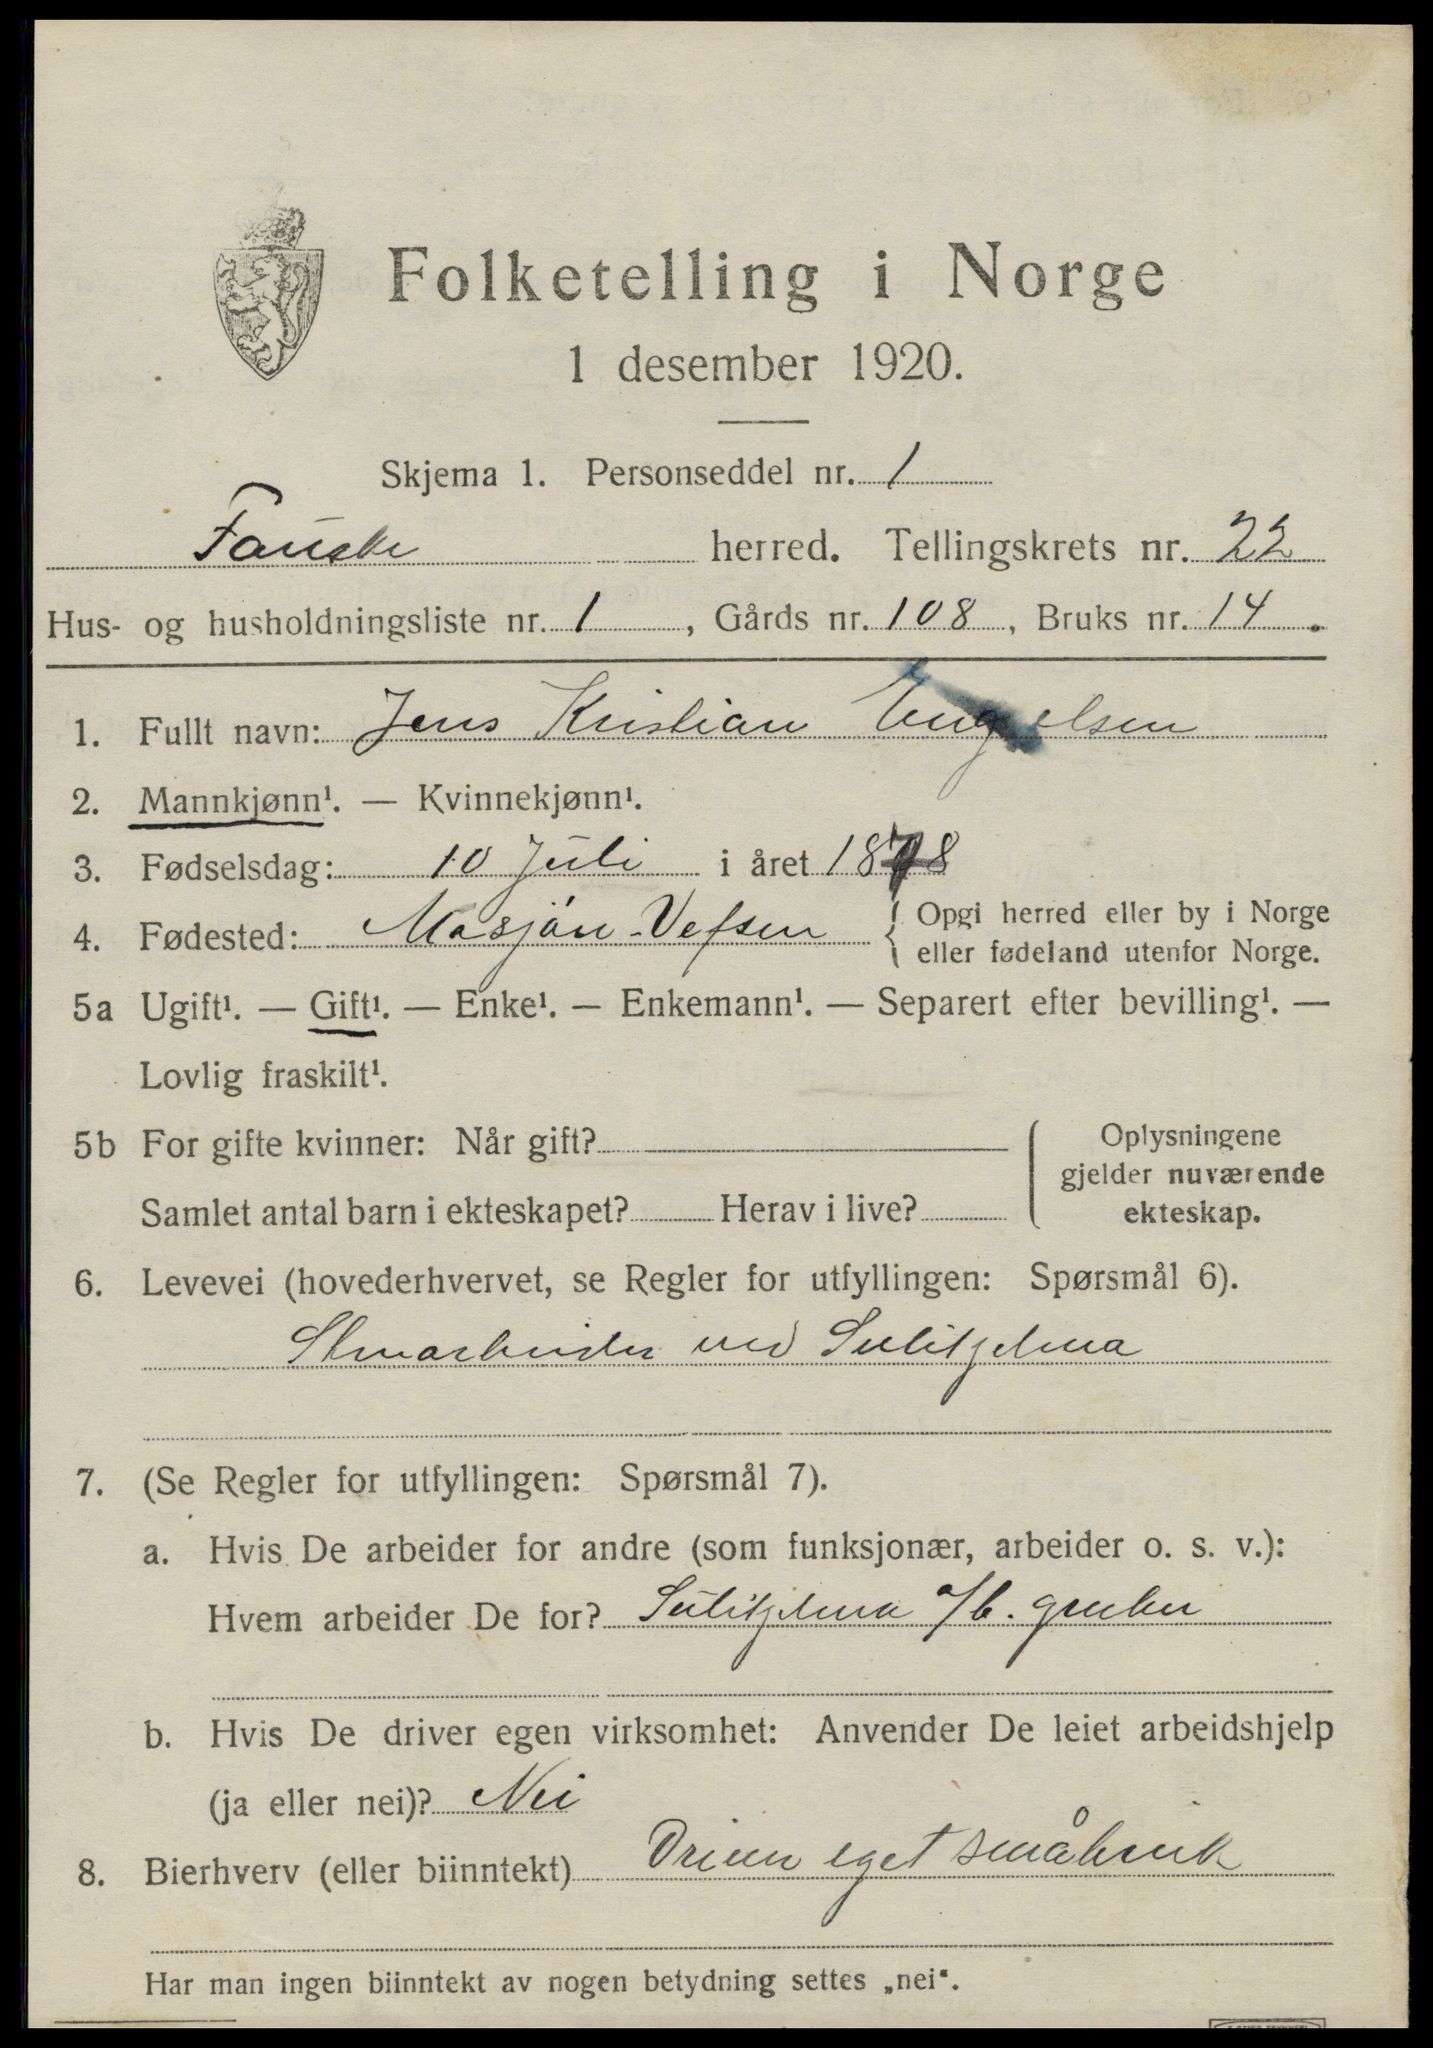 Folketelling i Norge
1 desember 1920.
Skjema 1. Personseddel nr. 1
Fauske herred. Tellingskrets nr. 22
Hus- og husholdningsliste nr. 1, Gårds nr. 108, Bruks nr. 14.
1. Fullt navn: Jens Kristian Engelsen
2. Mannkjønn¹. — Kvinnekjønn¹.
3. Fødselsdag: 10 Juli i året 1878
4. Fødested: Mosjøen-Vefsen { Opgi herred eller by i Norge
eller fødeland utenfor Norge.
5a Ugift¹. — Gift¹. — Enke¹. — Enkemann¹. — Separert efter bevilling¹. —
Lovlig fraskilt¹.
5b For gifte kvinner: Når gift?
Samlet antal barn i ekteskapet? Herav i live?
Oplysningene
gjelder nuværende
ekteskap.
6. Levevei (hovederhvervet, se Regler for utfyllingen: Spørsmål 6).
ved Sulitjelma
7. (Se Regler for utfyllingen: Spørsmål 7).
a. Hvis De arbeider for andre (som funksjonær, arbeider o. s. v.):
Hvem arbeider De for? Sulitjelma a/b. gruber
b. Hvis De driver egen virksomhet: Anvender De leiet arbeidshjelp
(ja eller nei)? Nei
8. Bierhverv (eller biinntekt) Driver eget småbruk
Har man ingen biinntekt av nogen betydning settes „nei“.